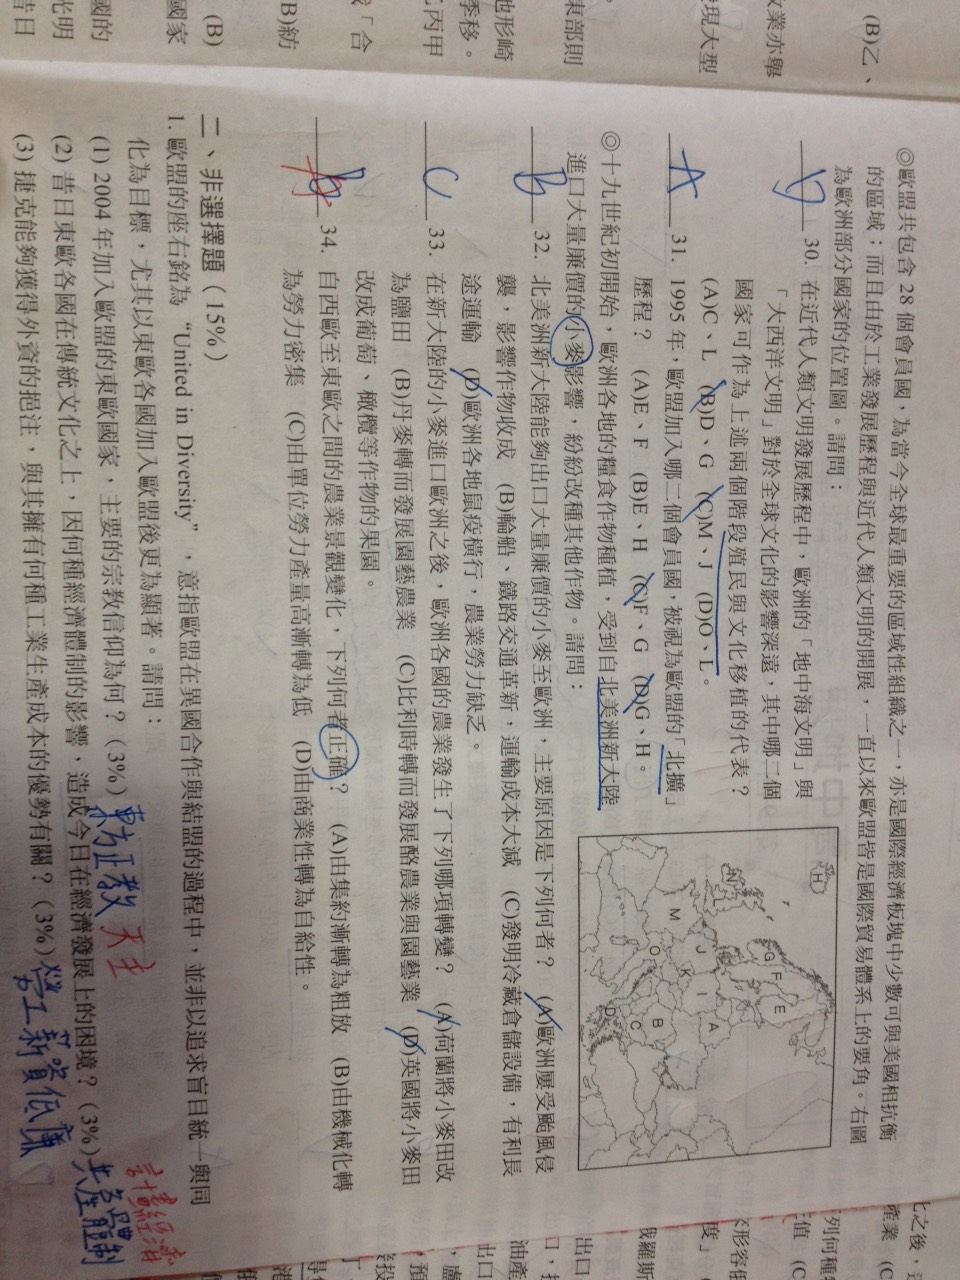 ◎歐盟共包含 28 個會員國，為當今全球最重要的區域性組織之一，亦是國際經濟板塊中少數可與美國相抗衡
的區域；而且由於工業發展歷程與近代人類文明的開展，一直以來歐盟皆是國際貿易體系上的要角。右圖
為歐洲部分國家的位置圖。請問：
D 30. 在近代人類文明發展歷程中，歐洲的「地中海文明」與
「大西洋文明」對於全球文化的影響深遠，其中哪二個
國家可作為上述兩個階段殖民與文化移植的代表？
(A)C、L (B)D、G (C)M、J (D)O、L。
A 31. 1995 年，歐盟加入哪二個會員國，被視為歐盟的「北擴」
歷程？ (A)E、F (B)E、H (C)F、G (D)G、H。
◎十九世紀初開始，歐洲各地的糧食作物種植，受到自北美洲新大陸
進口大量廉價的小麥影響，紛紛改種其他作物。請問：
B 32. 北美洲新大陸能夠出口大量廉價的小麥至歐洲，主要原因是下列何者？ (A)歐洲屢受颱風侵
襲，影響作物收成 (B)輪船、鐵路交通革新，運輸成本大減 (C)發明冷藏倉儲設備，有利長
途運輸 (D)歐洲各地鼠疫橫行，農業勞力缺乏。
C 33. 在新大陸的小麥進口歐洲之後，歐洲各國的農業發生了下列哪項轉變？ (A)荷蘭將小麥田改
為鹽田 (B)丹麥轉而發展園藝農業 (C)比利時轉而發展酪農業與園藝業 (D)英國將小麥田
改成葡萄、橄欖等作物的果園。
34. 自西歐至東歐之間的農業景觀變化，下列何者正確？ (A)由集約漸轉為粗放 (B)由機械化轉
為勞力密集 (C)由單位勞力產量高漸轉為低 (D)由商業性轉為自給性。
二、非選擇題（15%）
1. 歐盟的座右銘為 “United in Diversity”，意指歐盟在異國合作與結盟的過程中，並非以追求盲目統一與同
化為目標，尤其以東歐各國加入歐盟後更為顯著。請問：
(1) 2004 年加入歐盟的東歐國家，主要的宗教信仰為何？（3%）東正教 天主
(2) 昔日東歐各國在傳統文化之上，因何種經濟體制的影響，造成今日在經濟發展上的困境？（3%）共產體制
計畫經濟
(3) 捷克能夠獲得外資的挹注，與其擁有何種工業生產成本的優勢有關？（3%）勞工薪資低廉
H
G
F
E
L
J
I
A
M
K
B
O
C
D